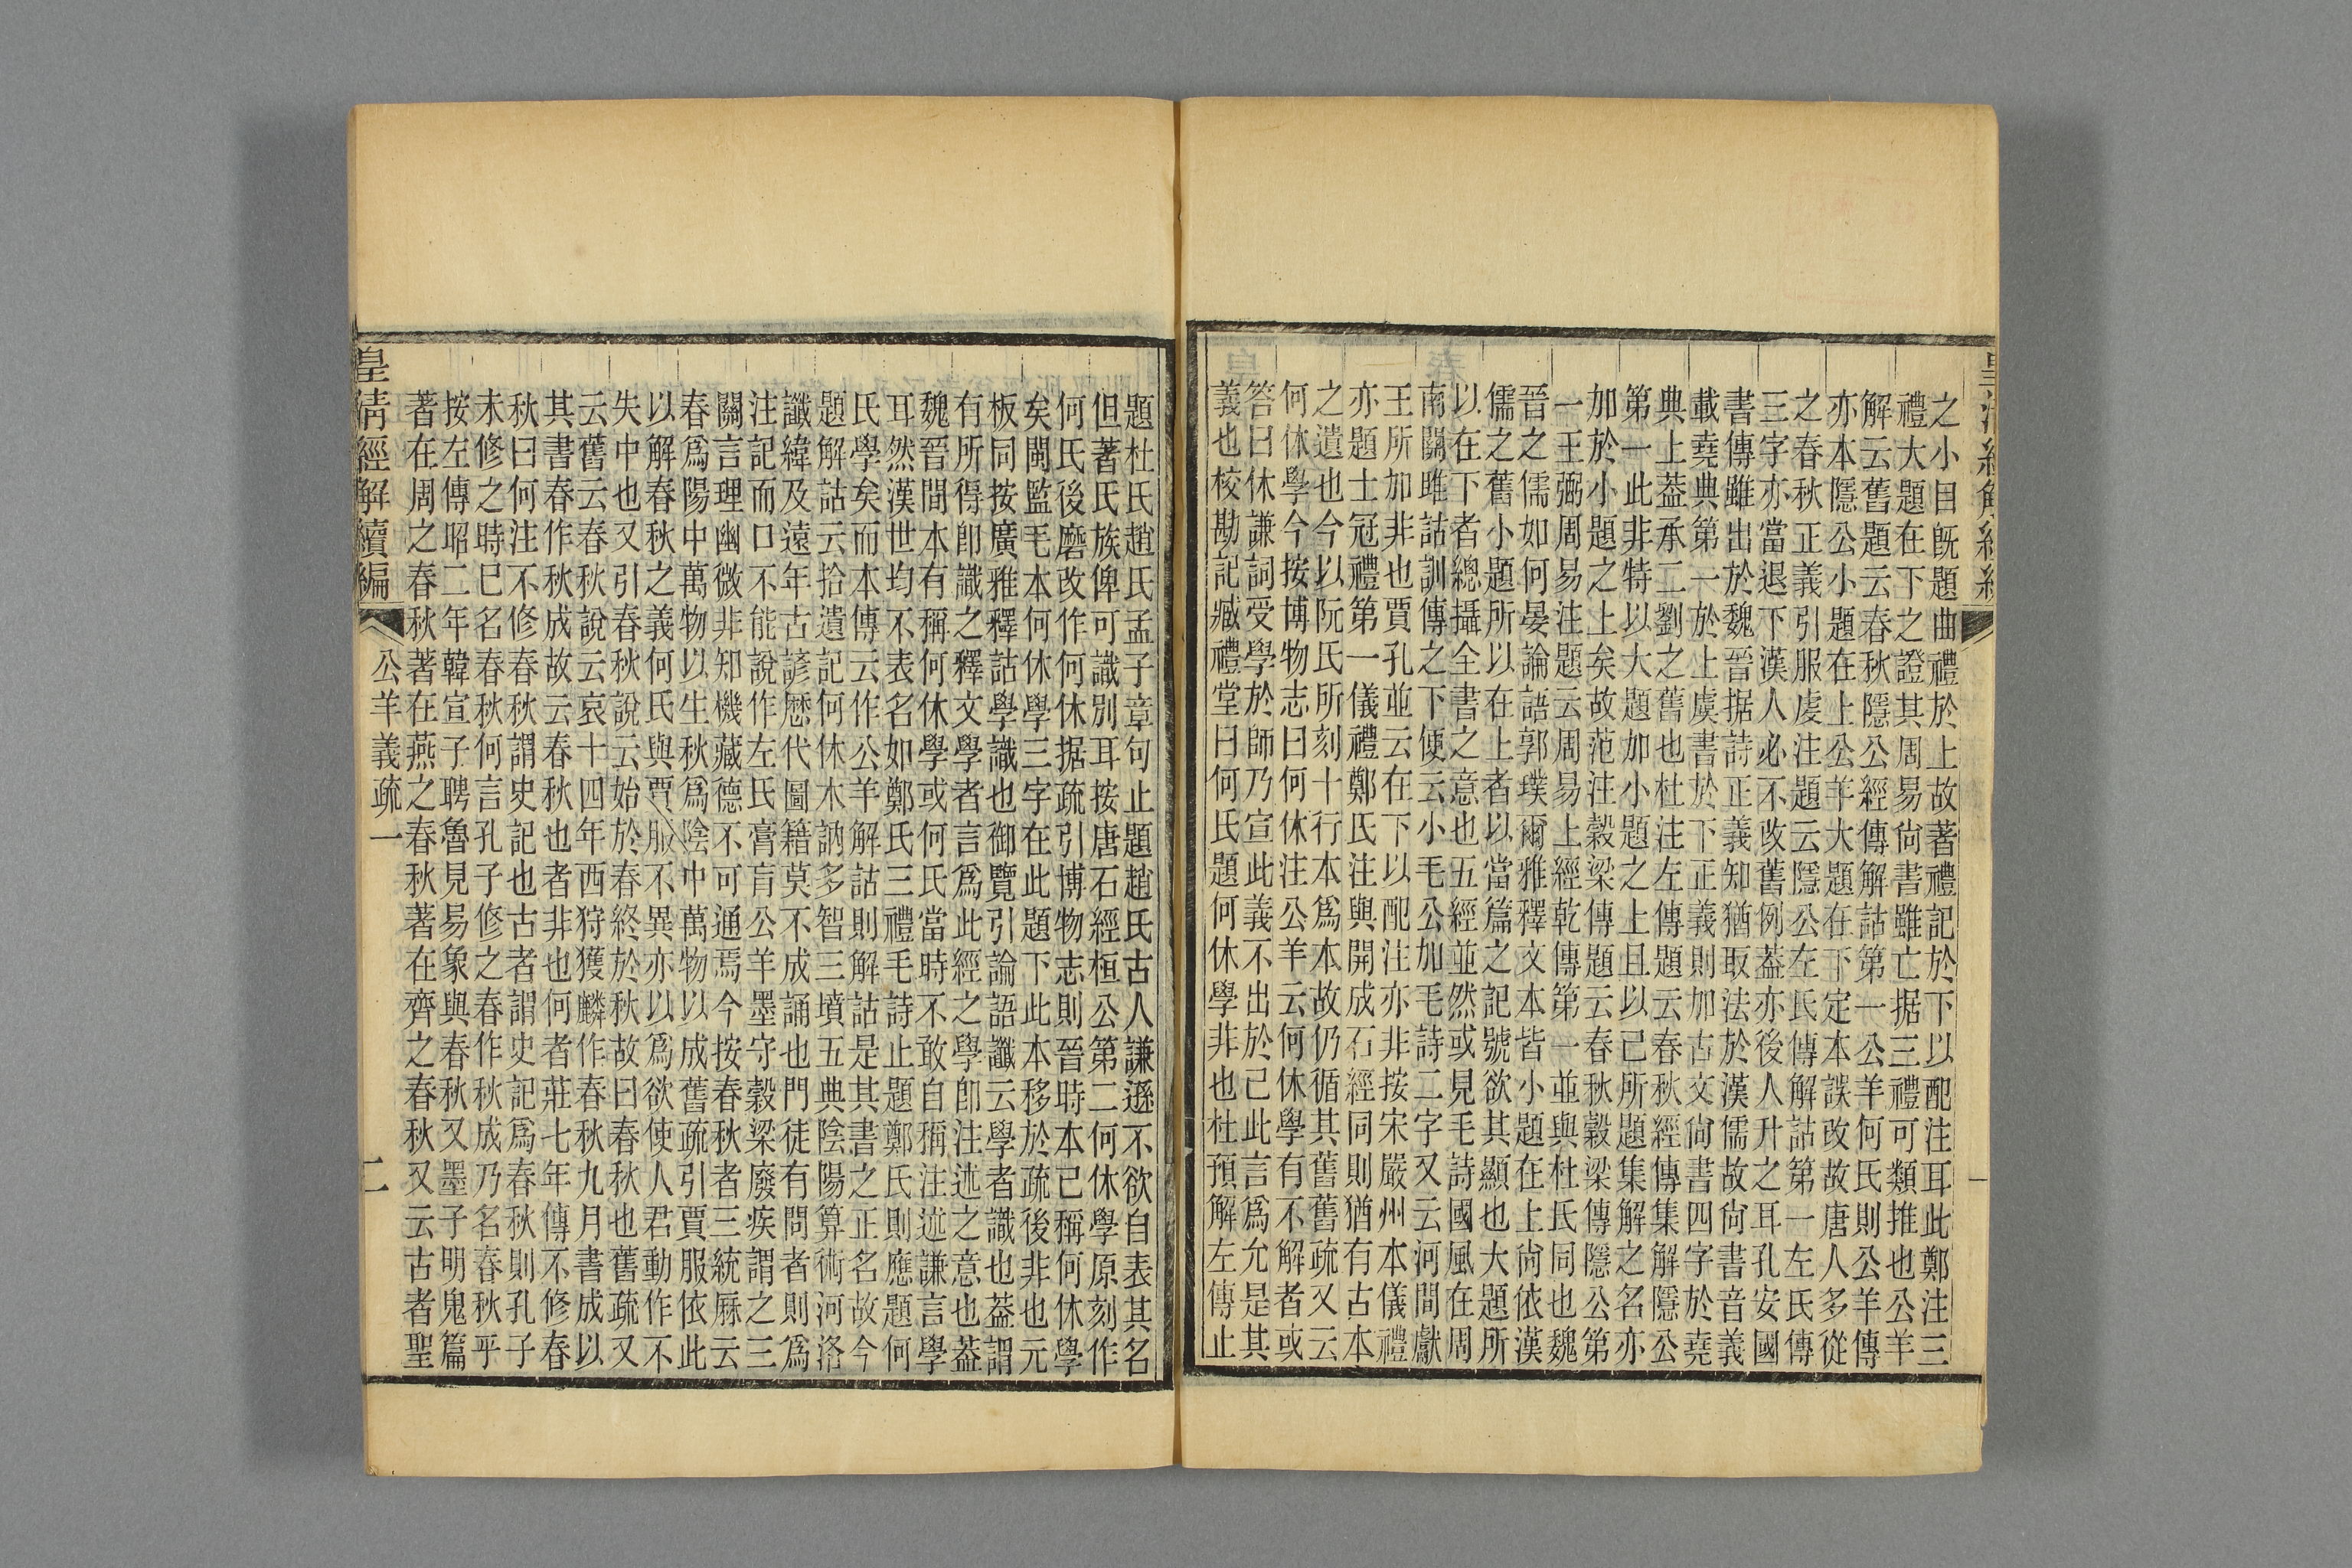 之小目旣題曲禮於上故著禮記於下以配注耳此鄭注三
禮大題在下之證其周易尙書雖亡据三禮可類推也公羊
解云舊題云春秋隱公經傳解詁第一公羊何氏則公羊傳
亦本隱公小題在上公羊大題在下定本誤改故唐人多從
之春秋正義引服虔注題云隱公左氏傳解詁第一左氏傳
三字亦當退下漢人必不改舊例葢亦後人升之耳孔安國
書傳雖出於魏晉据詩正義知猶取法於漢儒故尙書音義
載堯典第一於上虞書於下正義則加古文尙書四字於堯
典上葢承二劉之舊也杜注左傳題云春秋經傳集解隱公
第一此非特以大題加小題之上且以己所題集解之名亦
加於小題之上矣故范注穀梁傳題云春秋穀梁傳隱公第
一王弼周易注題云周易上經乾傳第一並與杜氏同也魏
晉之儒如何晏論語郭璞爾雅釋文本皆小題在上尙依漢
儒之舊小題所以在上者以當篇之記號欲其顯也大題所
以在下者總攝全書之意也五經並然或見毛詩國風在周
南關雎詁訓傳之下便云小毛公加毛詩二字又云河間獻
王所加非也賈孔並云在下以配注亦非按宋嚴州本儀禮
亦題士冠禮第一儀禮鄭氏注與開成石經同則猶有古本
之遺也今以阮氏所刻十行本爲本故仍循其舊舊疏又云
何休學今按博物志曰何休注公羊云何休學有不解者或
答曰休謙詞受學於師乃宣此義不出於己此言爲允是其
義也校勘記臧禮堂曰何氏題何休學非也杜預解左傳止
題杜氏趙氏孟子章句止題趙氏古人謙遜不欲自表其名
但著氏族俾可識別耳按唐石經桓公第二何休學原刻作
何氏後磨改作何休据疏引博物志則晉時本已稱何休學
矣閩監毛本何休學三字在此題下此本移於疏後非也元
板同按廣雅釋詁學識也御覽引論語讖云學者識也葢謂
有所得卽識之釋文學者言爲此經之學卽注述之意也葢
魏晉間本有稱何休學或何氏當時不敢自稱注述謙言學
耳然漢世均不表名如鄭氏三禮毛詩止題鄭氏則應題何
氏學矣而本傳云作公羊解詁則解詁是其書之正名故今
題解詁云拾遺記何休木訥多智三墳五典陰陽算術河洛
讖緯及遠年古諺歷代圖籍莫不成誦也門徒有問者則爲
注記而口不能說作左氏膏肓公羊墨守穀梁廢疾謂之三
闕言理幽微非知機藏德不可通焉今按春秋者三統厤云
春爲陽中萬物以生秋爲陰中萬物以成舊疏引賈服依此
以解春秋之義何氏與賈服不異亦以爲欲使人君動作不
失中也又引春秋說云始於春終於秋故曰春秋也舊疏又
云舊云春秋說云哀十四年西狩獲麟作春秋九月書成以
其書春作秋成故云春秋也者非也何者莊七年傳不修春
秋曰何注不修春秋謂史記也古者謂史記爲春秋則孔子
未修之時已名春秋何言孔子修之春作秋成乃名春秋乎
按左傳昭二年韓宣子聘魯見易象與春秋又墨子明鬼篇
著在周之春秋著在燕之春秋著在齊之春秋又云古者聖
皇淸經解續編
公羊義疏一
二